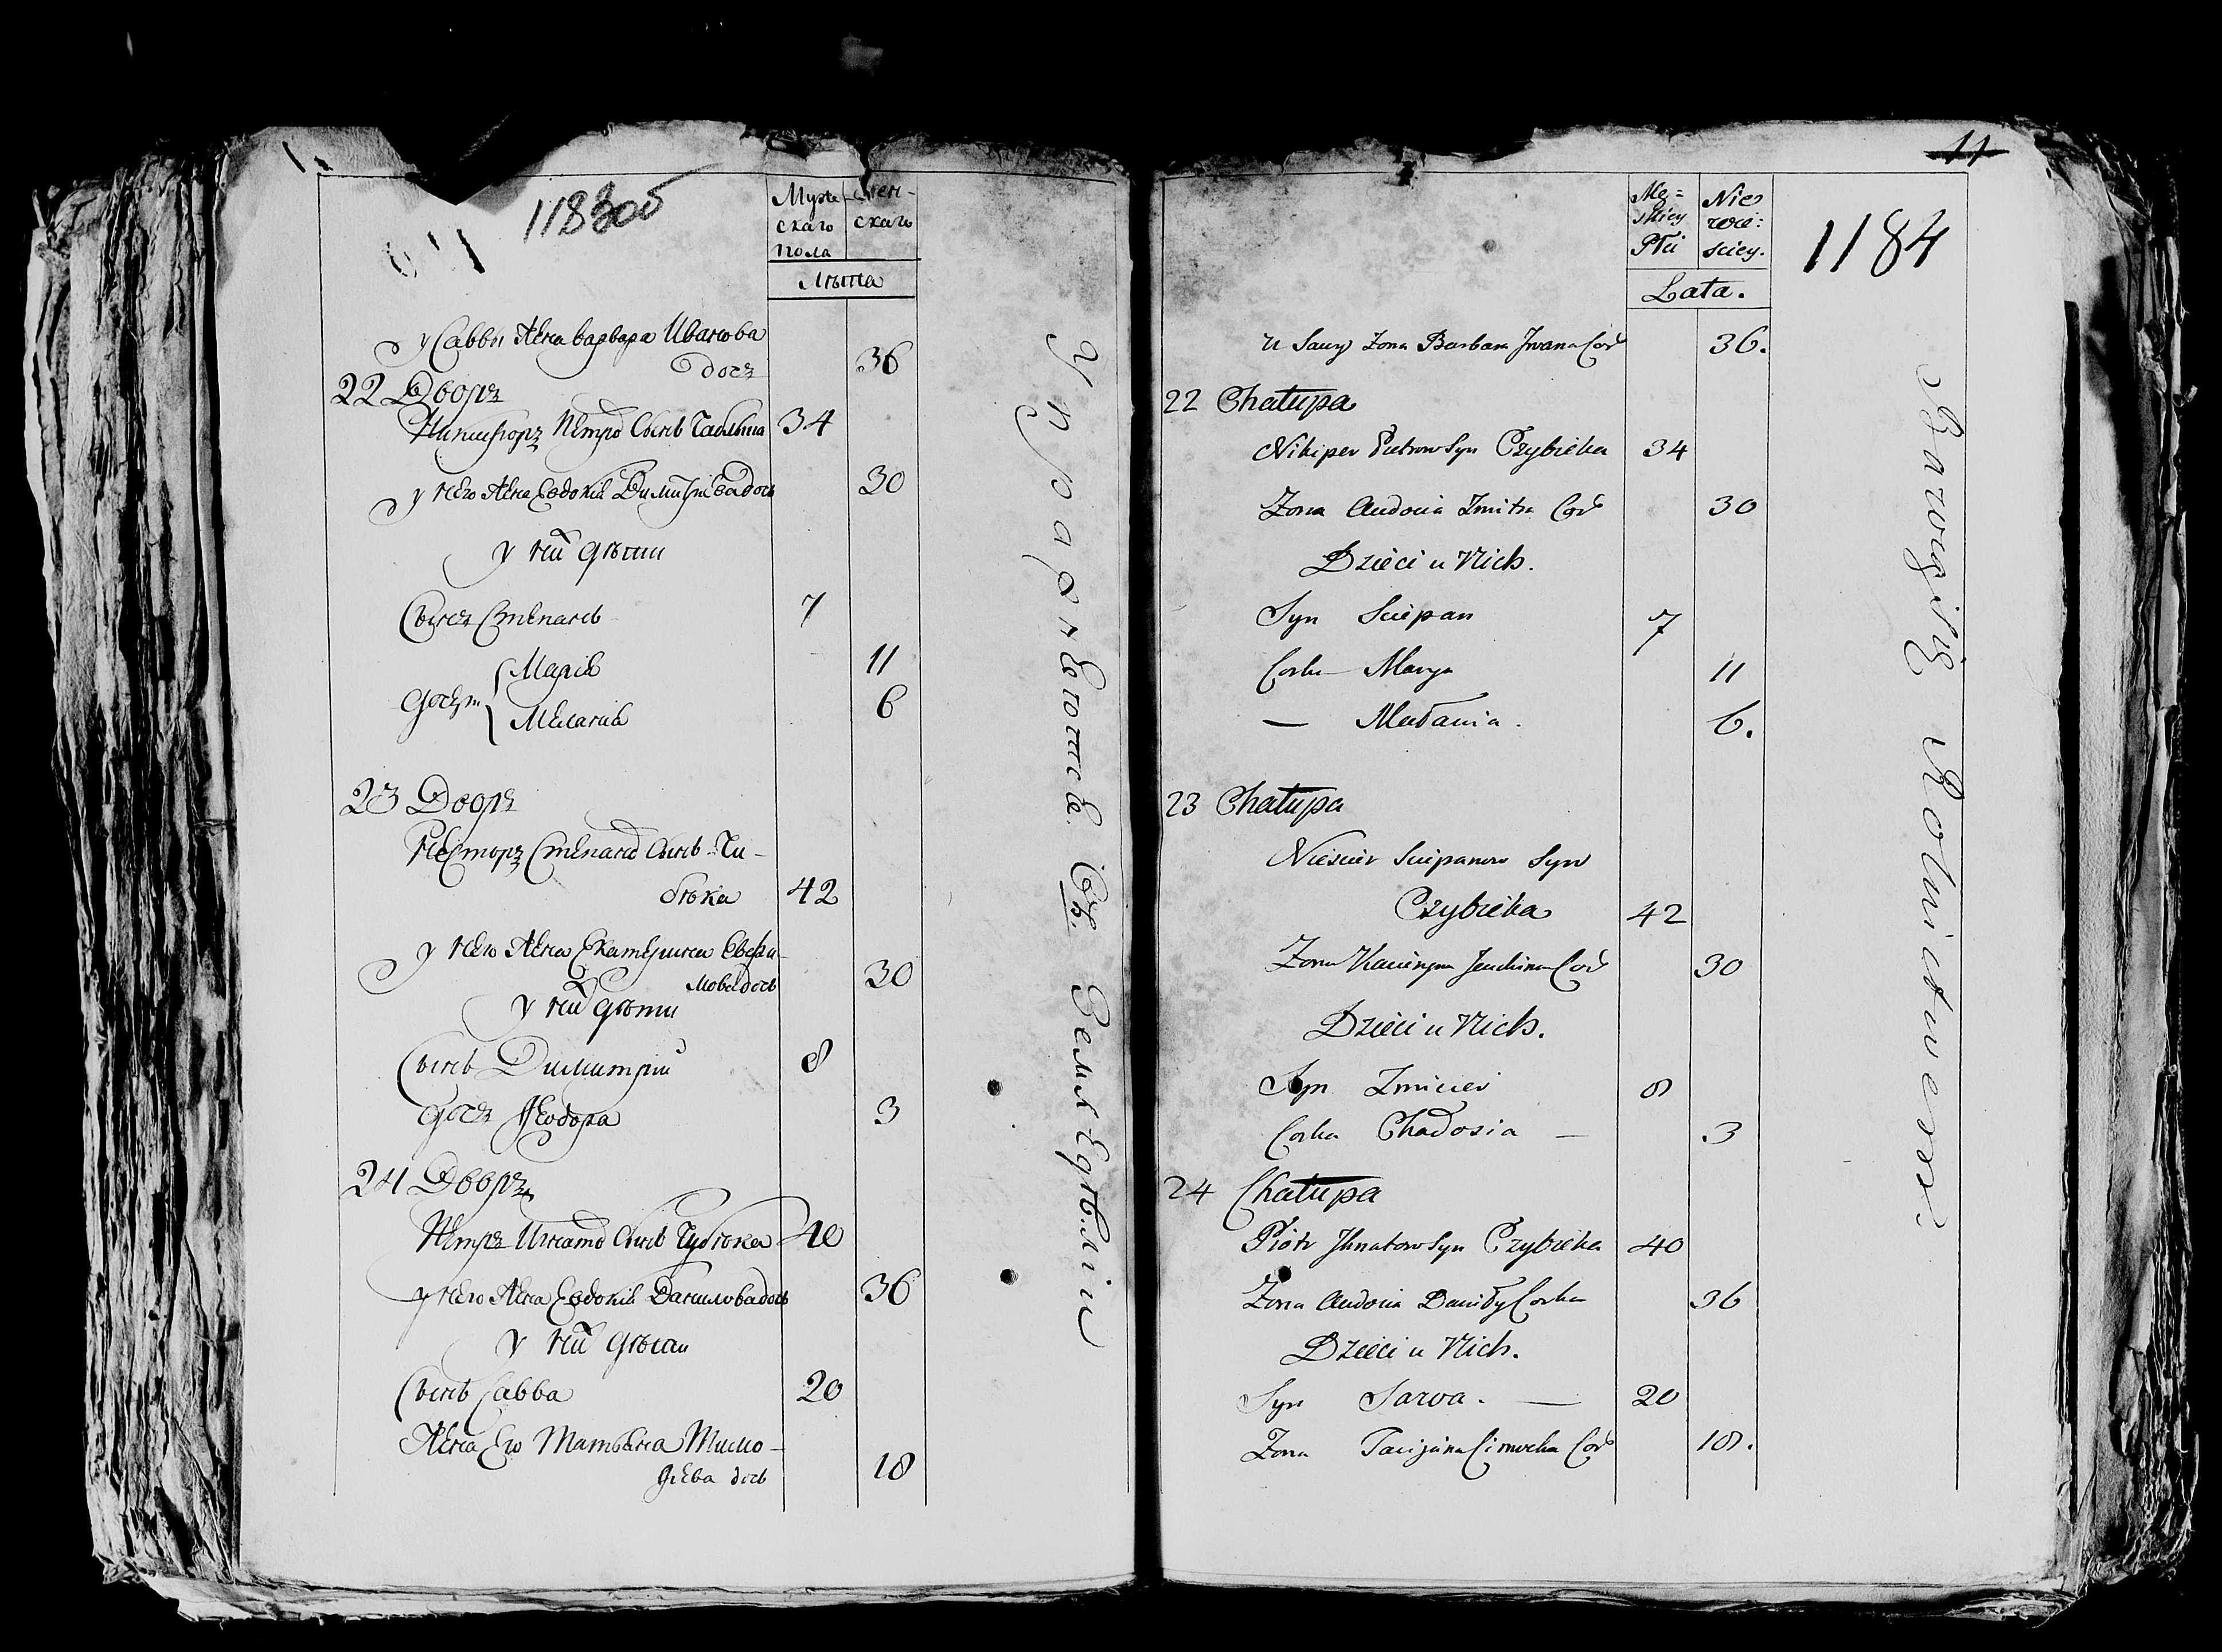 118305
Муже-
скаго
пола
Жен-
скаго
Лѣта
у Саввы жена варвара Иванова
дочь 36
22 Дворъ
Никифоръ Петровъ Сынъ 34
у него жена Евдокія Димитріева дочь 30
у них дѣти
Сынъ Степанъ 7
дочери Марія 11
Меланія 6
23 Дворъ
Несторъ Степановъ Сынъ Чи-
бѣка 42
у него жена Екатерина
мова дочь 30
у них дѣти
Сынъ Димитрий 8
дочь Ѳеодора 3
24 Дворъ
Петръ Игнатовъ Сынъ Чубѣка 40
у него жена Евдокія Данилова дочь 36
у них дѣти
Сынъ Савва 20
Жена Его Татьяна Тимо-
ѳеева дочь 18
Mę=
skiey
Płci
Nie
wie:
sciey.
Lata.
11
1184
u Sawy Zona Barbara Jwana Cor 36.
22 Chałupa
Nikiper Piotrow Syn Czybieka 34
Zona Audocia Zmitra Cor 30
Dzieci u Nich.
Syn Sciepan 7
Corka Marya 11
— Mełania. 6.
23 Chałupa
Niescier Sciepanow Syn
Czybieka 42
Zona Jauchima Cor 30
Dzieci u Nich.
Syn Zmicier 8
Corka Chadosia — 3
24 Chałupa
Piotr Jhnatow Syn Czybieka 40
Zona Audocia Daniły Corka 36
Dzieci u Nich.
Syn Sawa. — 20
Zona Tacijana Cimocha Cor 18.